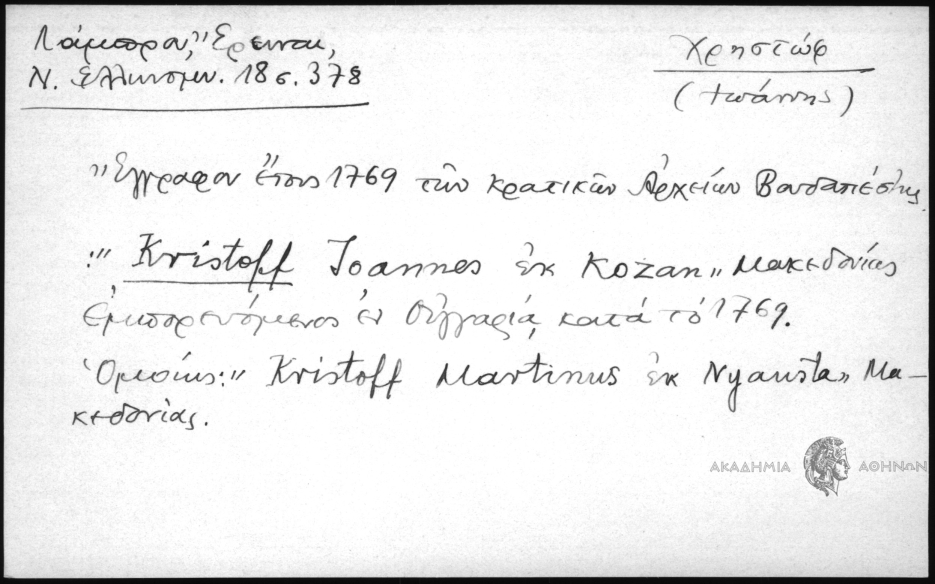 Λάμπρου, "Έρευναι,
Ν. Ελληνομν. 18 σ. 378
Χρηστώφ
(Ιωάννης)
"Έγγραφον έτους 1769 των κρατικών Αρχείων Βουδαπέστης
:" Kristoff Joannes ἐκ Kozan" Μακεδονίας
Εμπορευόμενος ἐν Ουγγαρία, κατά τό 1769.
Ὁμοίως:" Kristoff Martinus ἐκ Nyausta" Μα-
κεδονίας.
ΑΚΑΔΗΜΙΑ ΑΘΗΝΩΝ